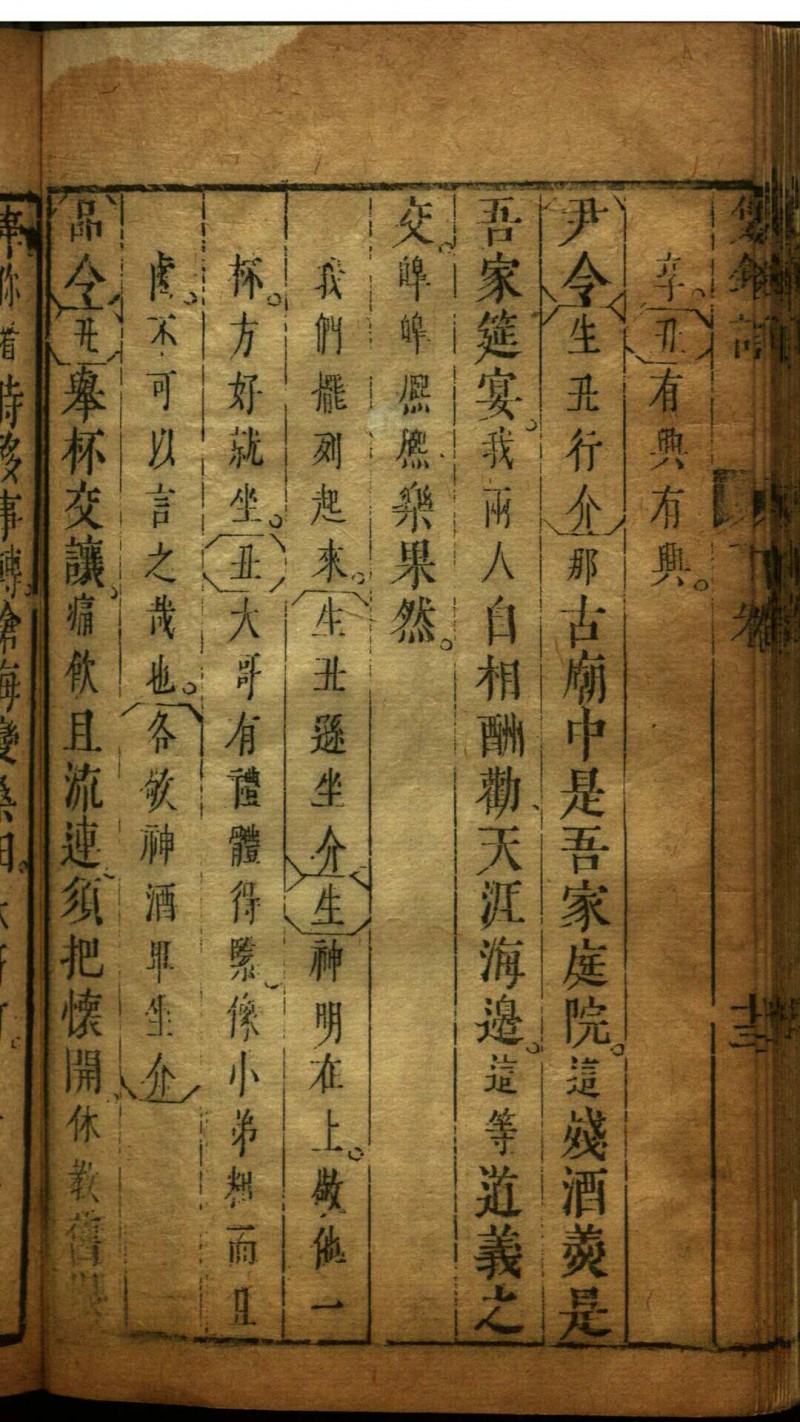 幸。丑有興有興。
尹令生丑行介那古廟中是吾家庭院。這殘酒羹是
吾家筵宴。我兩人自相酬勸、天涯海邊。這等道義之
交。皡皡熈熈樂果然。
我們擺列起來。生丑遜坐介生神明在上。敬他一
杯。方好就坐。丑大哥有禮體得緊。像小弟想而且
慮。不可以言之哉也。各敬神酒畢坐介
品令丑舉杯交讓。痛飲且流連。須把懷開休教舊
你看時移事轉。滄海變桑田。